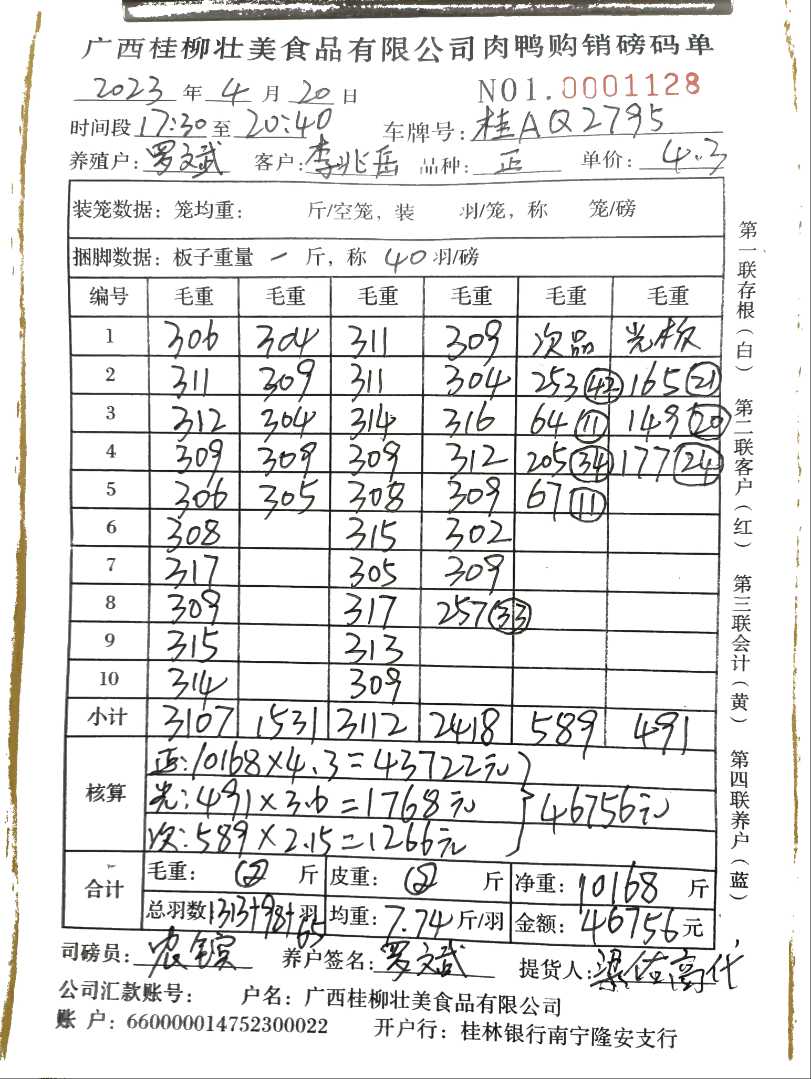 广西桂柳壮美食品有限公司肉鸭购销磅码单
2023 年 4 月 20 日 NO1.0001128
时间段 17:30 至 20:40 车牌号: 桂AQ2795
养殖户: 罗文斌 客户: 李兆岳 品种: 正 单价: 4.3
装笼数据: 笼均重: 斤/空笼, 装 羽/笼, 称 笼/磅
捆脚数据: 板子重量 一 斤, 称 40 羽/磅
编号 毛重 毛重 毛重 毛重 毛重 毛重
1 306 304 311 309 次品 光板
2 311 309 311 304 253 42 165 21
3 312 304 314 316 64 11 149 20
4 309 309 309 312 205 34 177 24
5 306 305 308 309 67 11
6 308 315 302
7 317 305 309
8 309 317 257 33
9 315 313
10 314 309
小计 3107 1531 3112 2418 589 491
正:10168×4.3=43722元
核算 光:491×3.6=1768元 46756元
次:589×2.15=1266元
合计 毛重: 斤 皮重: 斤 净重: 10168 斤
总羽数 1313+98+65 羽 均重: 7.74 斤/羽 金额: 46756 元
司磅员: 养户签名: 罗文斌 提货人:
公司汇款账号: 户名: 广西桂柳壮美食品有限公司
账 户: 660000014752300022 开户行: 桂林银行南宁隆安支行
第一联存根(白) 第二联客户(红) 第三联会计(黄) 第四联养户(蓝)